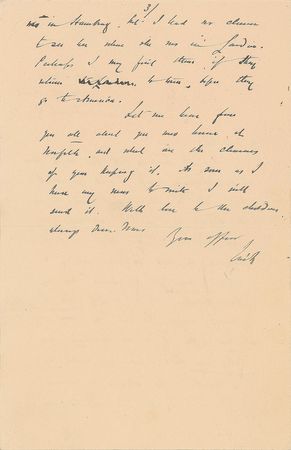 3/
was in Hamburg, but I had no chance
to see her when she was in London.
Perhaps I may find them if they
return to town, before they
go to America.
Let me hear from
you all about your new house at
Norfolk, and what are the chances
of your keeping it. As soon as I
have any news to write I will
send it. With love to the children,
always
Your affec